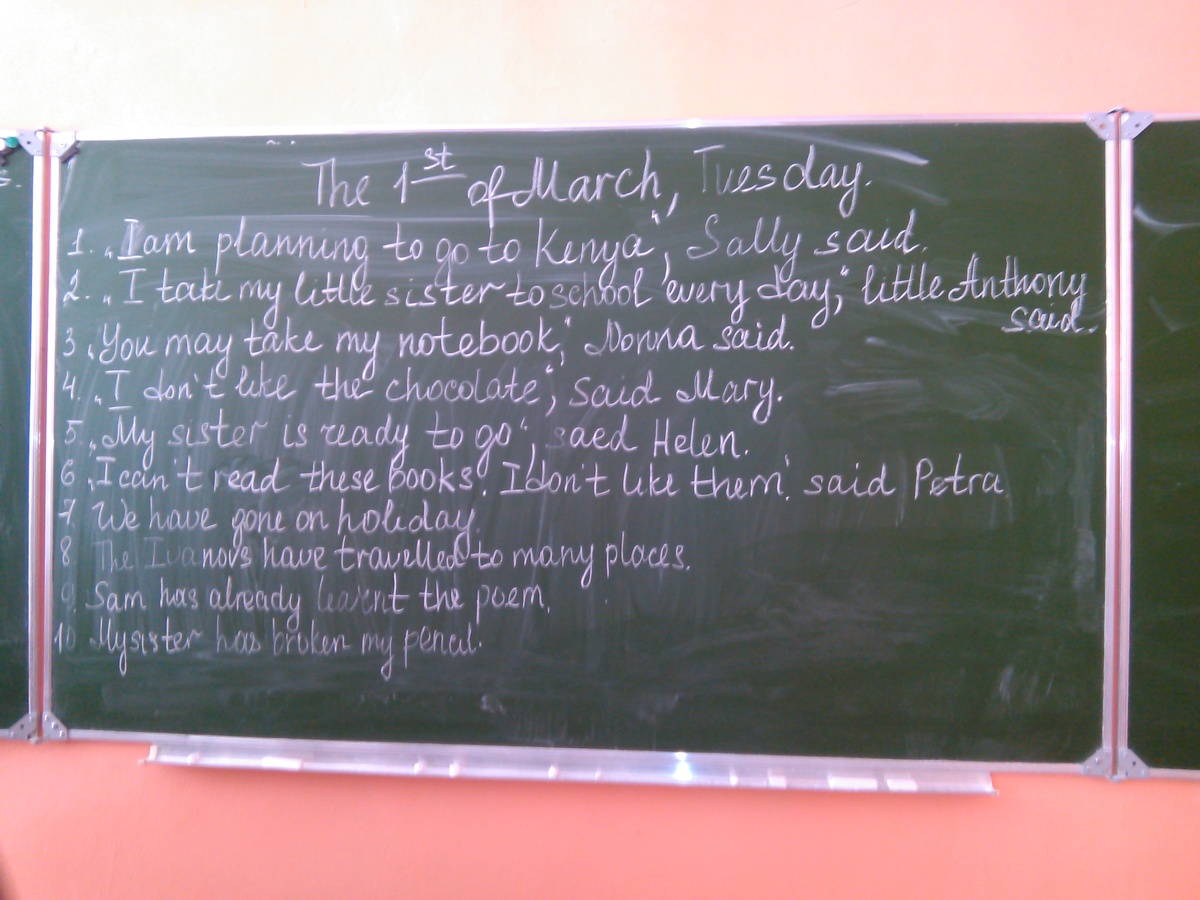 The 1st of March, Tuesday.
1. „I am planning to go to Kenya“, Sally said.
2. „I take my little sister to school every day“, little Anthony
said.
3 „You may take my notebook“, Donna said.
4. „I don't like the chocolate“, said Mary.
5. „My sister is ready to go“, saed Helen.
6 „I can't read these books. I don't like them“, said Petra
7. We have gone on holiday.
8 The Ivanovs have travelled to many places.
9. Sam has already learnt the poem.
10 My sister has broken my pencil.
s.